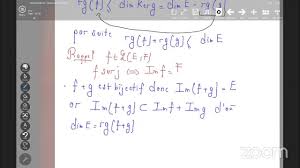 rg(f) ≤ dim Ker g = dim E - rg(g)
par suite rg(f)+rg(g) ≤ dim E
Rappel f ∈ L(E,F)
f surj ⟺ Im f = F
• f+g est bijectif donc Im(f+g) = E
or Im(f+g) ⊂ Im f + Im g d'où
dim E = rg(f+g)
zoom